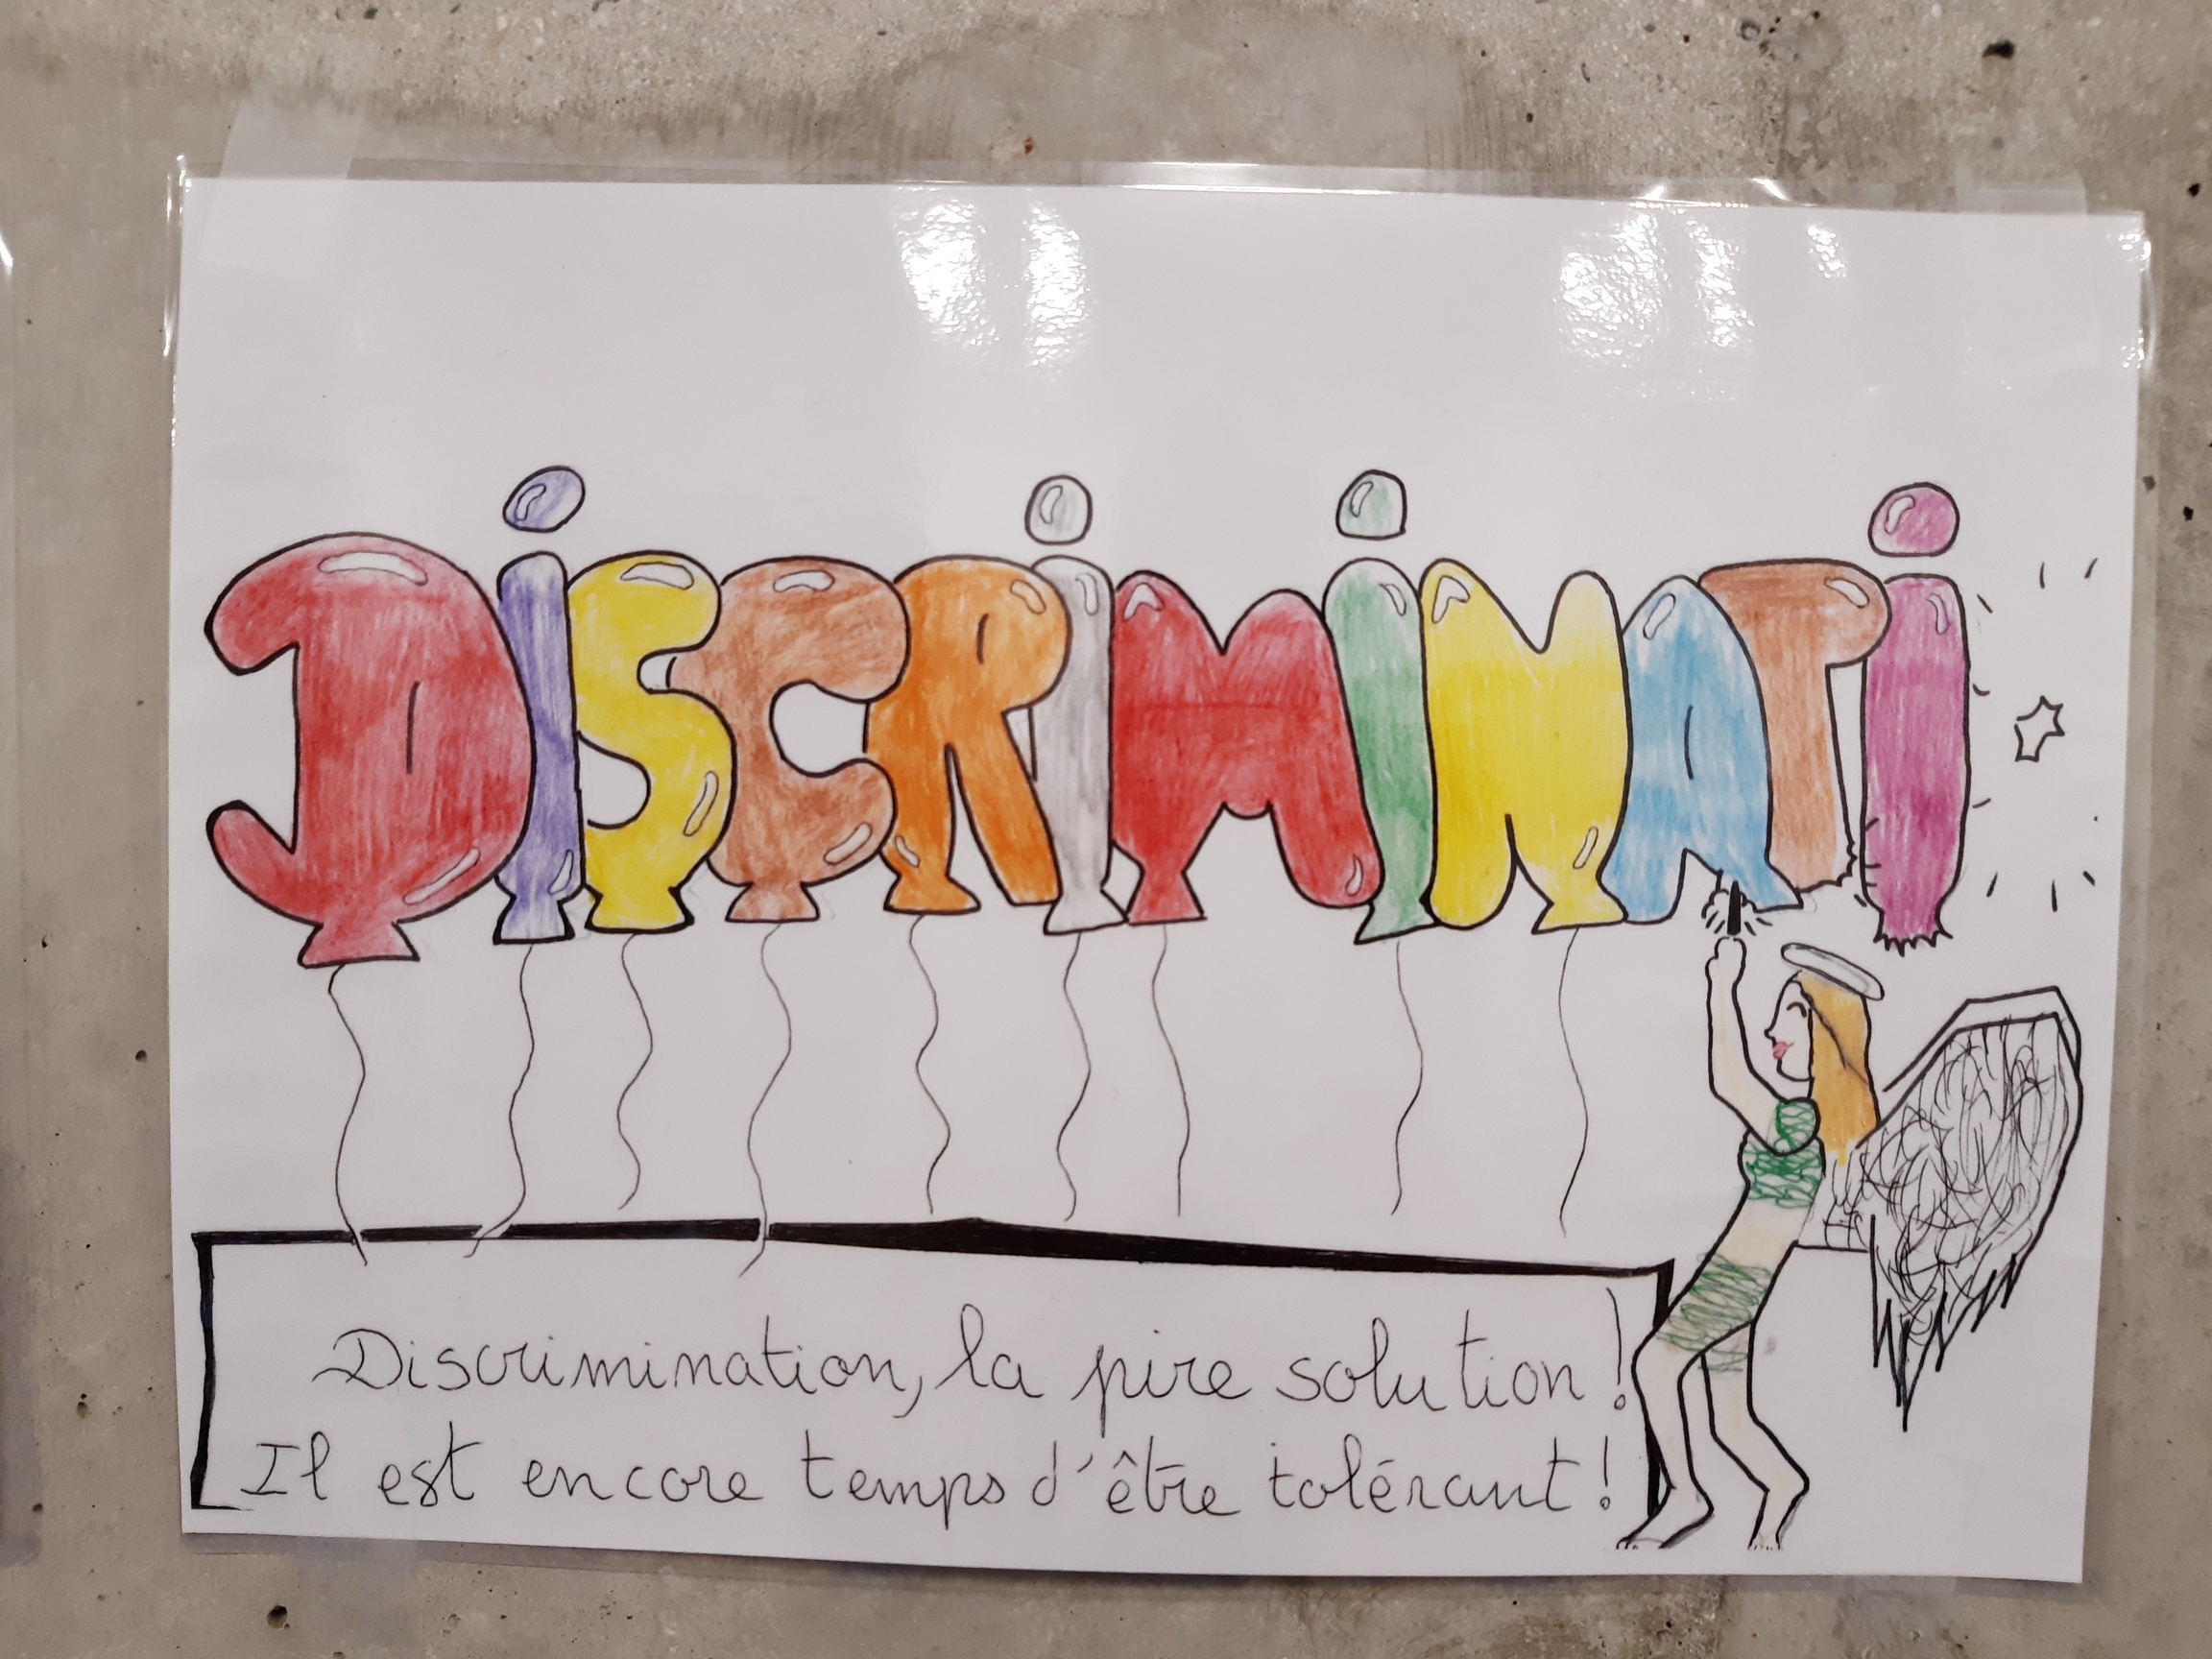 DiSCRiMiNATi
Discrimination, la pire solution !
Il est encore temps d'être tolérant !